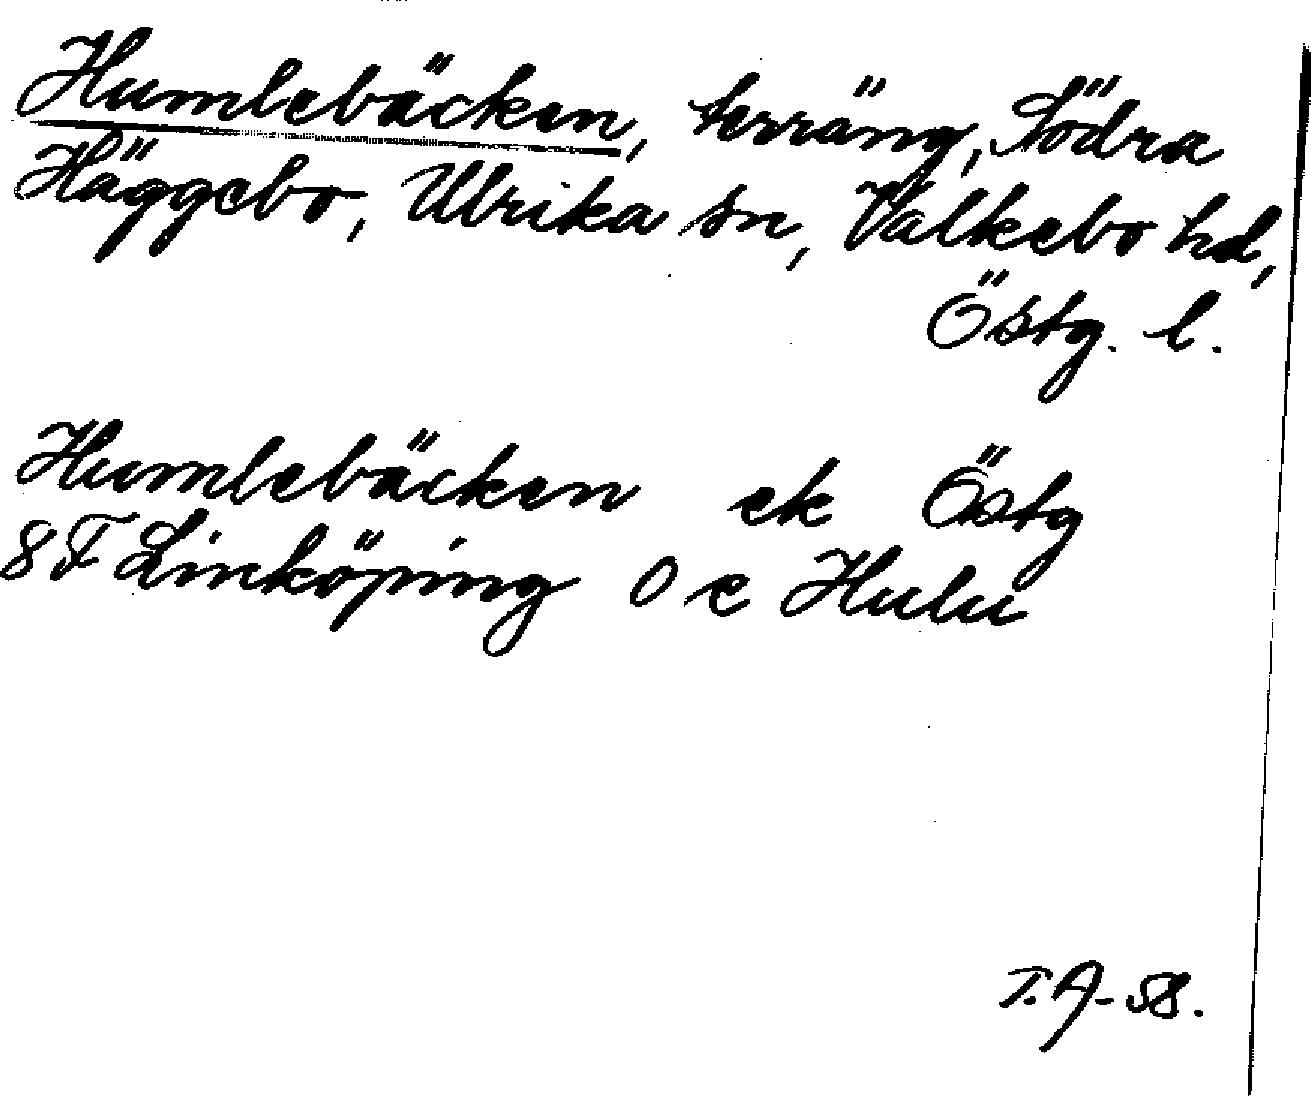 Humlebäcken, terräng, Södra
Häggebo, Ulrika sn, Valkebo hd,
Östg. l.
Humlebäcken ek Östg
8F Linköping 0 e Hulu
T.A-58.